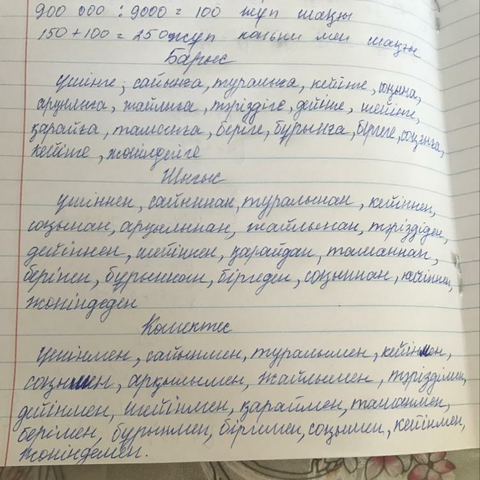 900 000 : 9000 = 100 жуп шаңғы
150 + 100 = 250 жуп коньки мен шаңғы
Барыс
үшінге, сайынға, туралыға, кейінге, соңына,
арқылыға, жайлыға, тәріздіге, дейінге, шейінге,
қарайға, таманға, беріге, бұрынға, біргеге, соңынға,
кейінге, жөніндеіге
Шығыс
үшіннен, сайыннан, туралынан, кейіннен,
соңынан, арқылынан, жайлынан, тәріздіден,
дейіннен, шейіннен, қарайдан, таманнан,
берінен, бұрыннан, біргеден, соңыннан, кейіннен,
жөніндеден
Көмектес
үшінмен, сайынмен, туралымен, кейінмен,
соңымен, арқылымен, жайлымен, тәріздімен,
дейінмен, шейінмен, қараймен, таманмен,
берімен, бұрынмен, біргемен, соңымен, кейінмен,
жөніндемен.